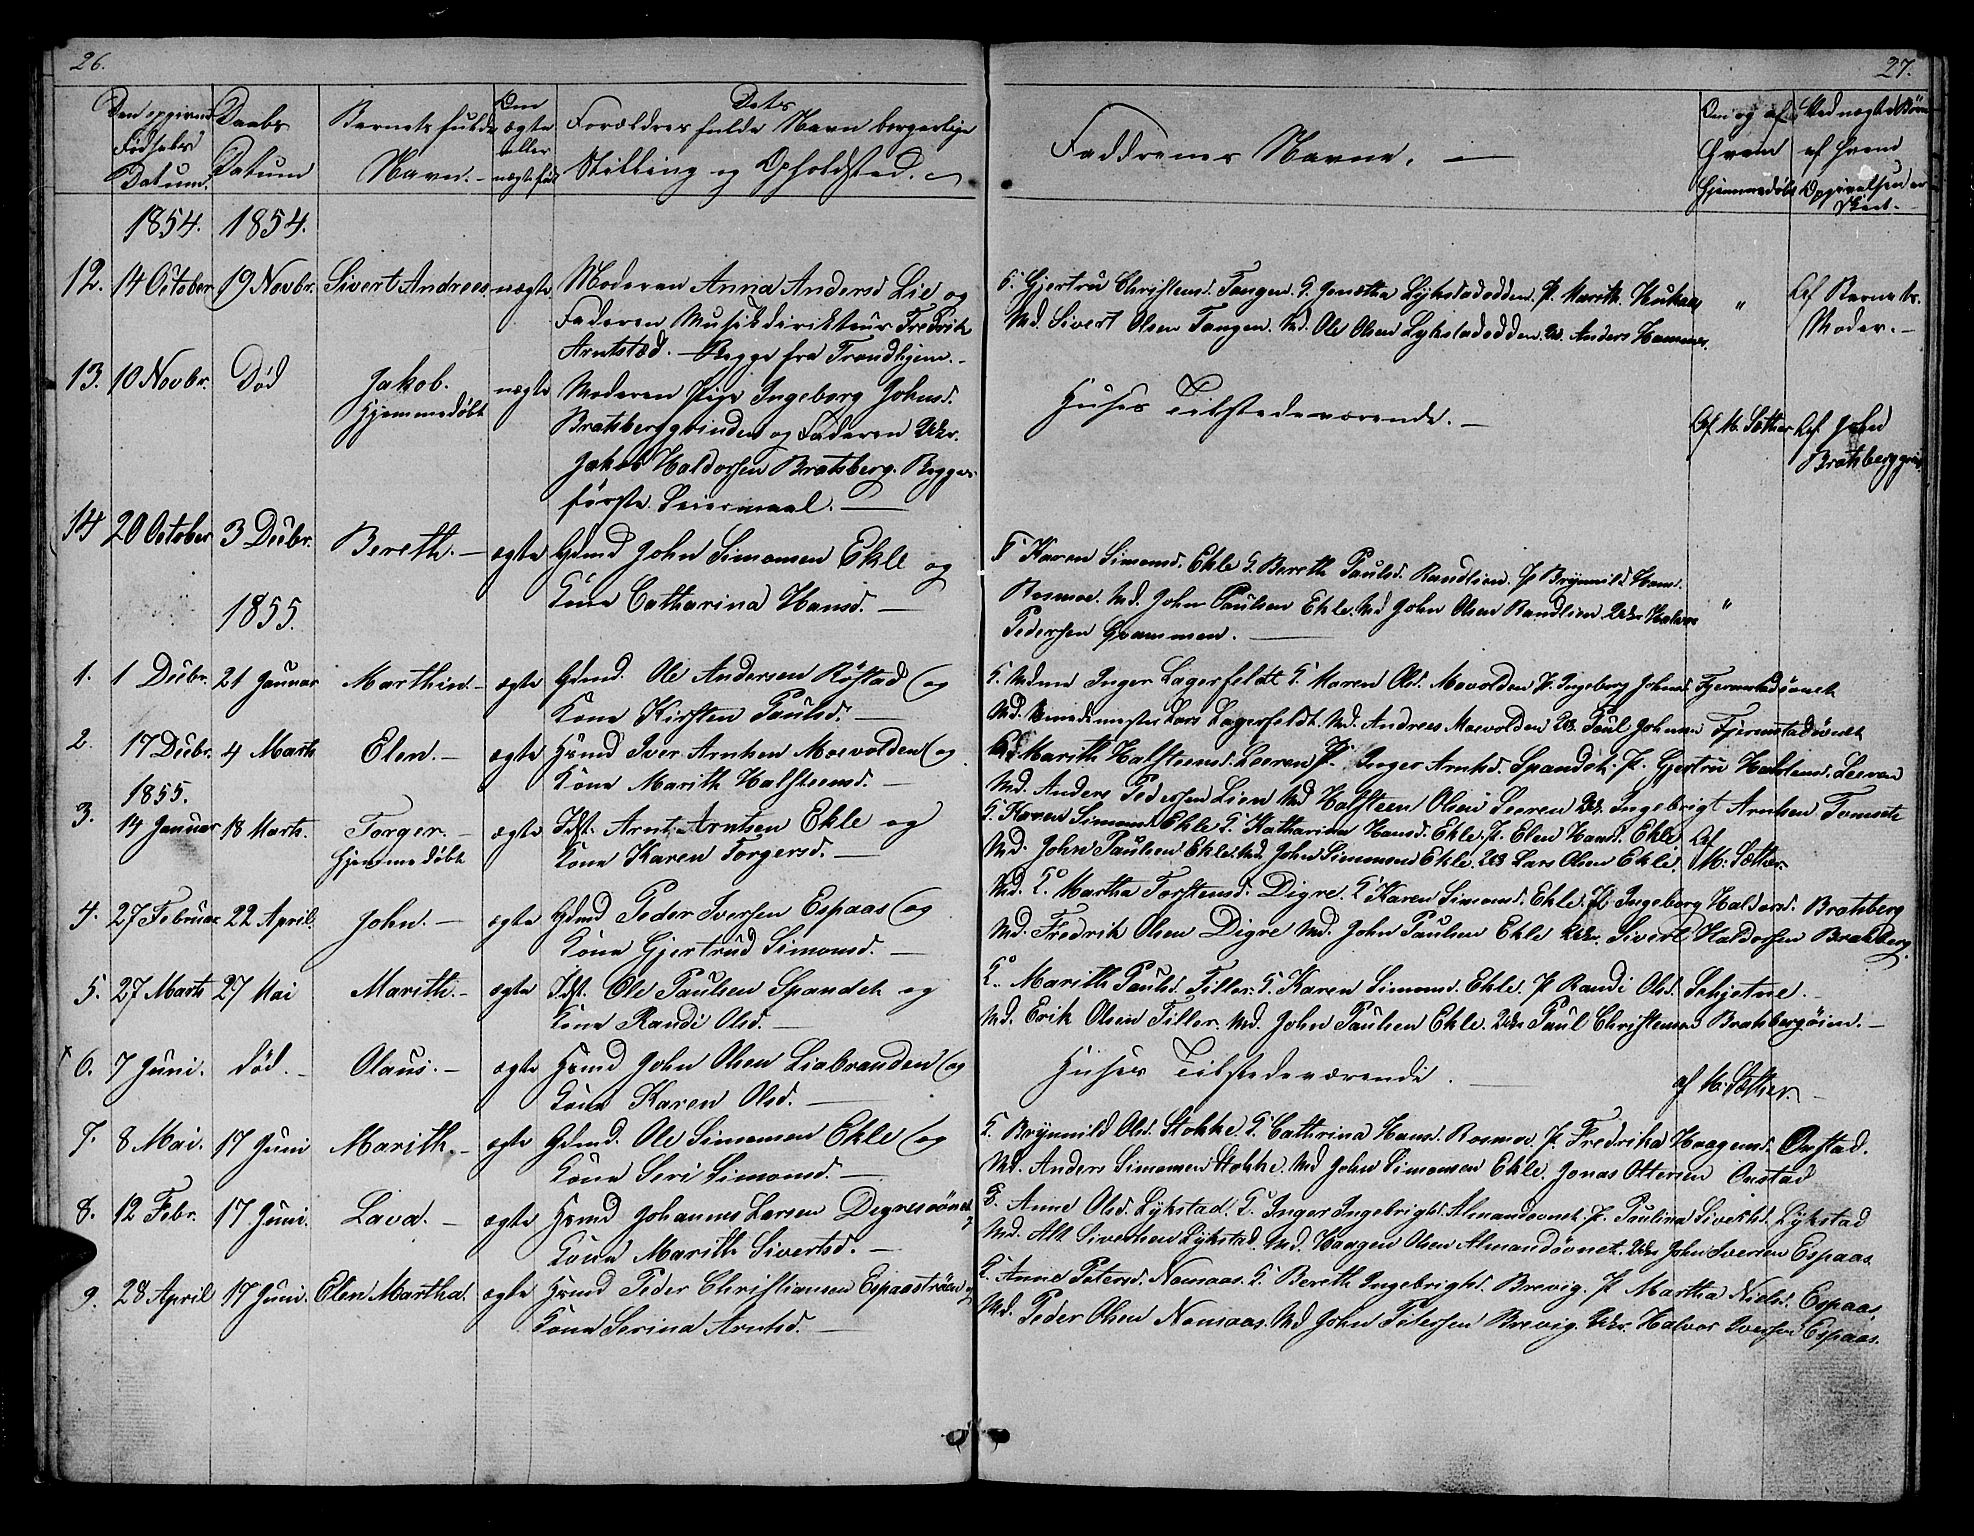 26.
27.
Den opgivne Fødsels Datum.
Daabs Datum
Barnets fulde Navn.
Om ægte eller uægte født
Dets Forældres fulde Navn borgerlige Stilling og Opholdsted.
Faddrenes Navne.
Om og af Hvem Hjemmedøbt
Ved uægte Børn af Hvem Opgivelsen er Skeet.
1854. 1854.
12. 14 October 19 Novbr. Sivert Andreas. uægte Moderen Anna Andersd Lie og
Faderen Musikdirekteur Fredrik
Arntstad. Begge fra Trondhjem.
G. Gjertru Christensd. Tangen. G. Lykstadødden. P. Marith
Md. Sivert Olsen Tangen. Md. Ole Olsen Lykstadødden. U. Anders Hammer.
"
Af Barnets Moder.
13. 10 Novbr. Død Jakob. Hjemmedøbt uægte Moderen Pige Ingeborg Johnsd.
Bratsberggrinden og Faderen Ukr.
Jakob Haldorsen Bratsberg. Begges
første Leiermaal.
Huses Tilstedeværende.
Af M. Sæther
Af John Bratsberggrind
14 20 October 3 Decbr. Bereth. ægte Gdmd John Simonsen Ekle og
Kone Catharina Hansd.
G. Karen Simonsd. Ekle G. Bereth Paulsd. Randlien. P. Brynnild Hansd.
Rosmoe. Md. John Paulsen Ekle. Md John Olsen Randlien. Ukr Halvor
Pedersen Grammen.
"
1855.
1. 1 Decbr. 21 Januar Marthin. ægte Gdmd. Ole Andersen Røstad og
Kone Kirsten Paulsd.
G. Madme Inger Lagerfeldt G. Maren Olsd. Moevolden P. Ingeborg Johnsd. Fjeremstadøvnet
Md. Lars Lagerfeldt. Md. Andreas Moevolden Uk. Paul Johnsen Fjeremstadøvnet
2. 17 Decbr. 4 Marts Elen. ægte Hsmd Iver Arntsen Moevolden og
Kone Marith Halsteensd.
G. Marith Halsteensd. Leeren P. Inger Arntsd. Spandet. P. Gjertru Halstensd. Leeren
Md. Anders Pedersen Lien Md Halsteen Olsen Leeren Uk. Ingebrigt Arntsen Tomset
1855.
3. 14 Januar 18 Marts. Torger. Hjemmedøbt ægte Idst. Arnt Arntsen Ekle og
Kone Karen Torgersd.
G. Karen Simonsd Ekle G. Katharina Hansd. Ekle. P. Elen Hansd. Ekle.
Md. John Paulsen Ekle Md. John Simonsen Ekle. Uk Lars Olsen Ekle.
Af M. Sæther.
4. 27 Februar 22 April. John. ægte Gdmd Peder Iversen Espaas og
Kone Gjertrud Simonsd.
G. Martha Torstensd. Digre. G. Karen Simonsd. Ekle. P. Ingeborg Haldorsd. Bratsberg
Md. Fredrik Olsen Digre Md. John Paulsen Ekle Ukr. Sivert Haldorsen Bratsberg.
5. 27 Marts 27 Mai Marith. ægte Idst. Ole Paulsen Spandet og
Kone Randi Olsd.
G. Marith Paulsd. Tiller. G. Karen Simonsd. Ekle. P. Randi Olsd. Schjetne.
Md. Erik Olsen Tiller. Md. John Paulsen Ekle. Ukr Paul Christensen Bratsbergøien.
x 6. 7 Juni. død. Olaus. ægte Hsmd John Olsen Liabranden og
Kone Karen Olsd.
Huses Tilstedeværende.
af M. Sæther.
7. 8 Mai. 17 Juni Marith. ægte Gdmd. Ole Simonsen Ekle og
Kone Seri Simonsd.
G. Brynnild Olsd. Stokke. G. Cathrina Hansd. Rosmoe. P. Fredrika Haagensd. Onstad.
Md. Anders Simonsen Stokke. Md John Simonsen Ekle. Jonas Ottersen Onstad
8. 12 Febr. 17 Juni. Lava. ægte Hsmd Johannes Larsen Digresøvnet og
Kone Marith Sivertsd.
G. Anne Olsd. Lykstad. G. Inger Ingebrigtsd. Almandøvnet. P. Paulina Sivertsd. Lykstad
Md. Alt Sivertsen Lykstad. Md. Haagen Olsen Almandøvnet. Ukr John Iversen Espaas.
9. 28 April 17 Juni. Elen Martha. ægte Hsmd Peder Christiansen Espaastrøen og
Kone Serina Arntsd.
G. Anne Petersd. Nonsaas. G. Bereth Ingebrigtsd. Brevig. P. Martha Nielsd. Espaas
Md. Peder Olsen Nonsaas. Md John Petersen Brevig. Ukr. Halvor Iversen Espaas.